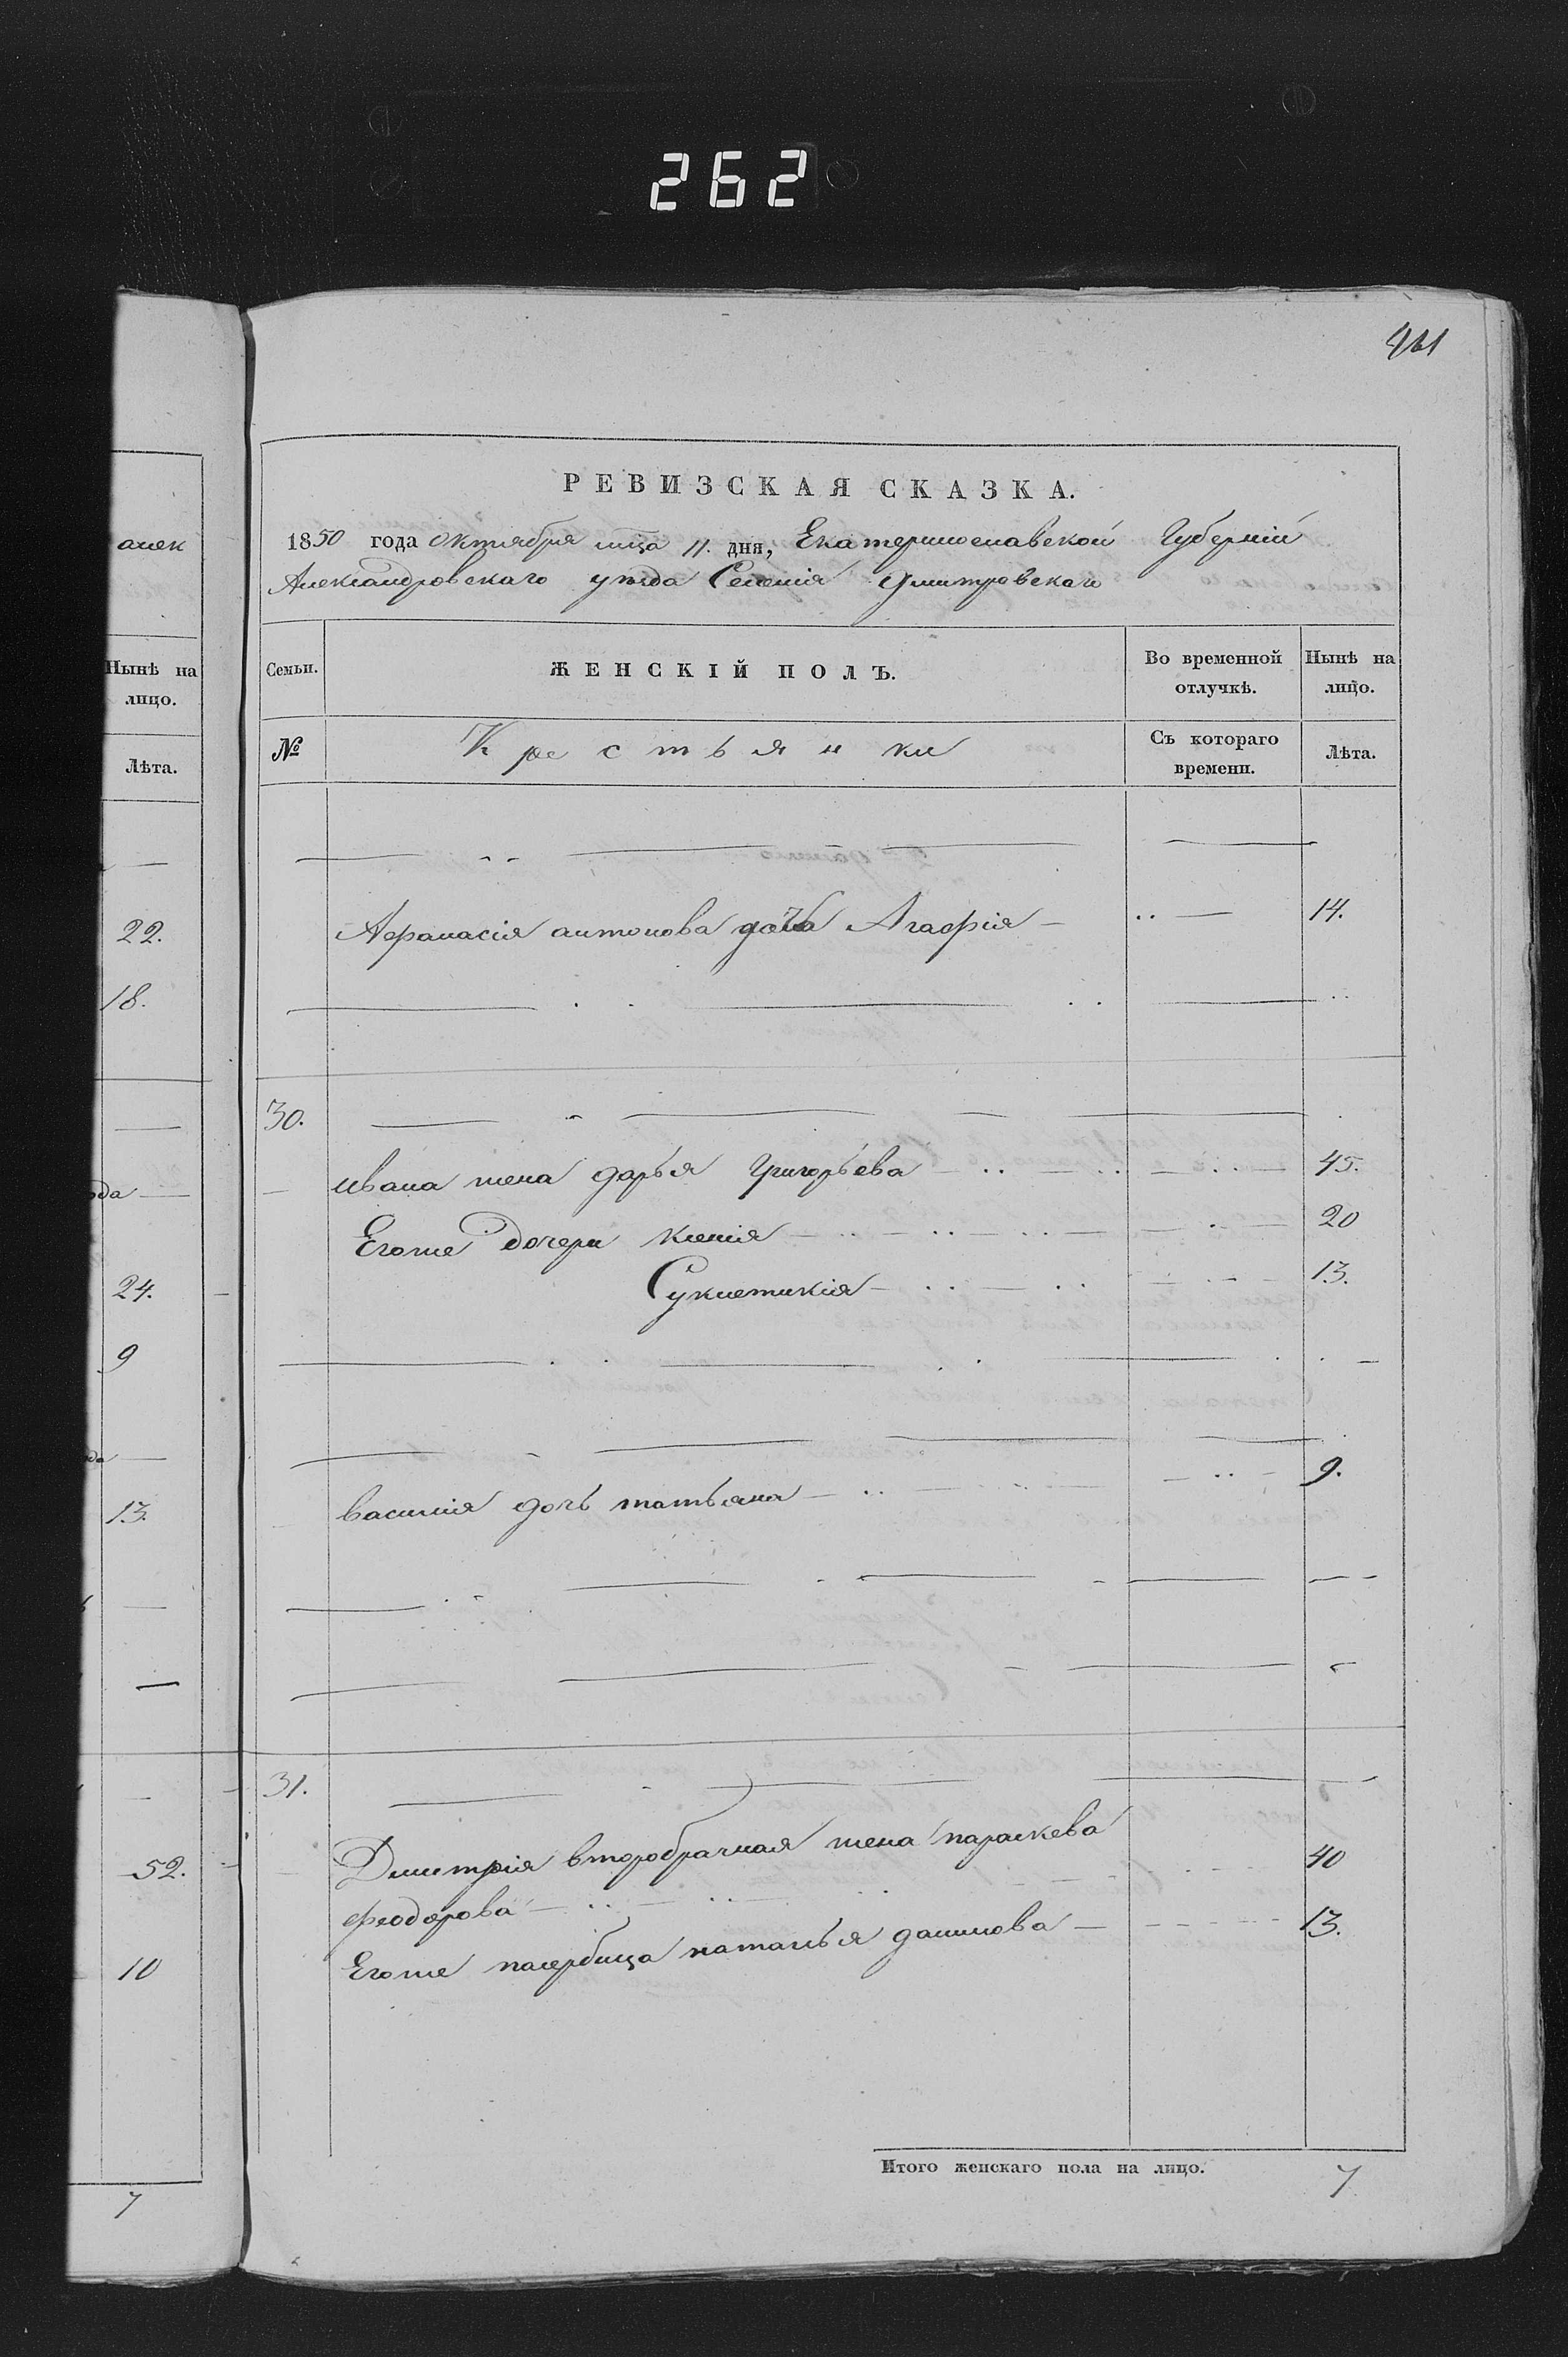 262
461
РЕВИЗСКАЯ СКАЗКА.
1850 года Октября мца 11. дня, Екатеринославской Губерніи
Александровскаго уезда Селенія Дмитровскаго
Семьи.
ЖЕНСКІЙ ПОЛЪ.
Во временной отлучкѣ.
Нынѣ на лицо.
№
Крестьянки
Съ котораго времени.
Лѣта.
Афанасія антонова дочь Агафія 14.
30.
ивана жена дарья Григорьева 45.
Егоже дочери ксенія 20
Сукметикія 13.
василія дочь татьяна 9.
31.
Дмитрія второбрачная жена параскева
феодорова 40
Егоже пасербица наталья данилова 13.
Итого женскаго пола на лицо. 7
Нынѣ на лицо.
Лѣта.
22.
18.
24.
9
13.
52.
10
7